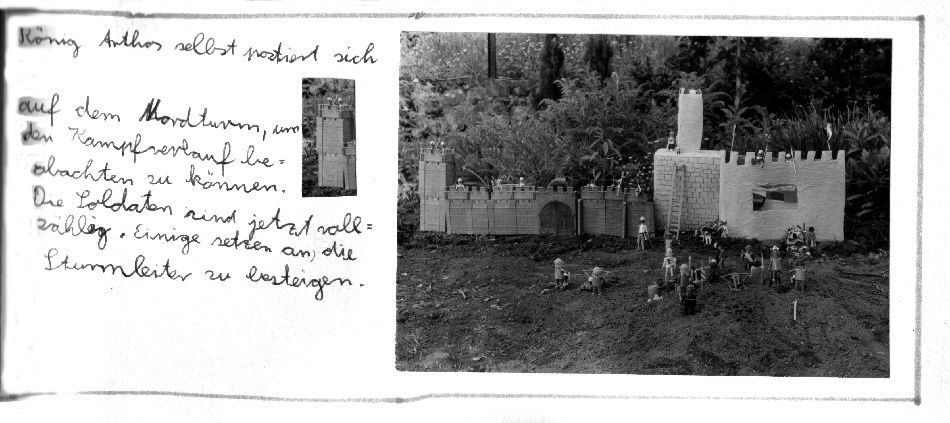 König Anthos selbst postiert sich
auf dem Nordturm, um
den Kampfverlauf be=
obachten zu können.
Die Soldaten sind jetzt voll=
zählig. Einige setzen an, die
Sturmleiter zu besteigen.